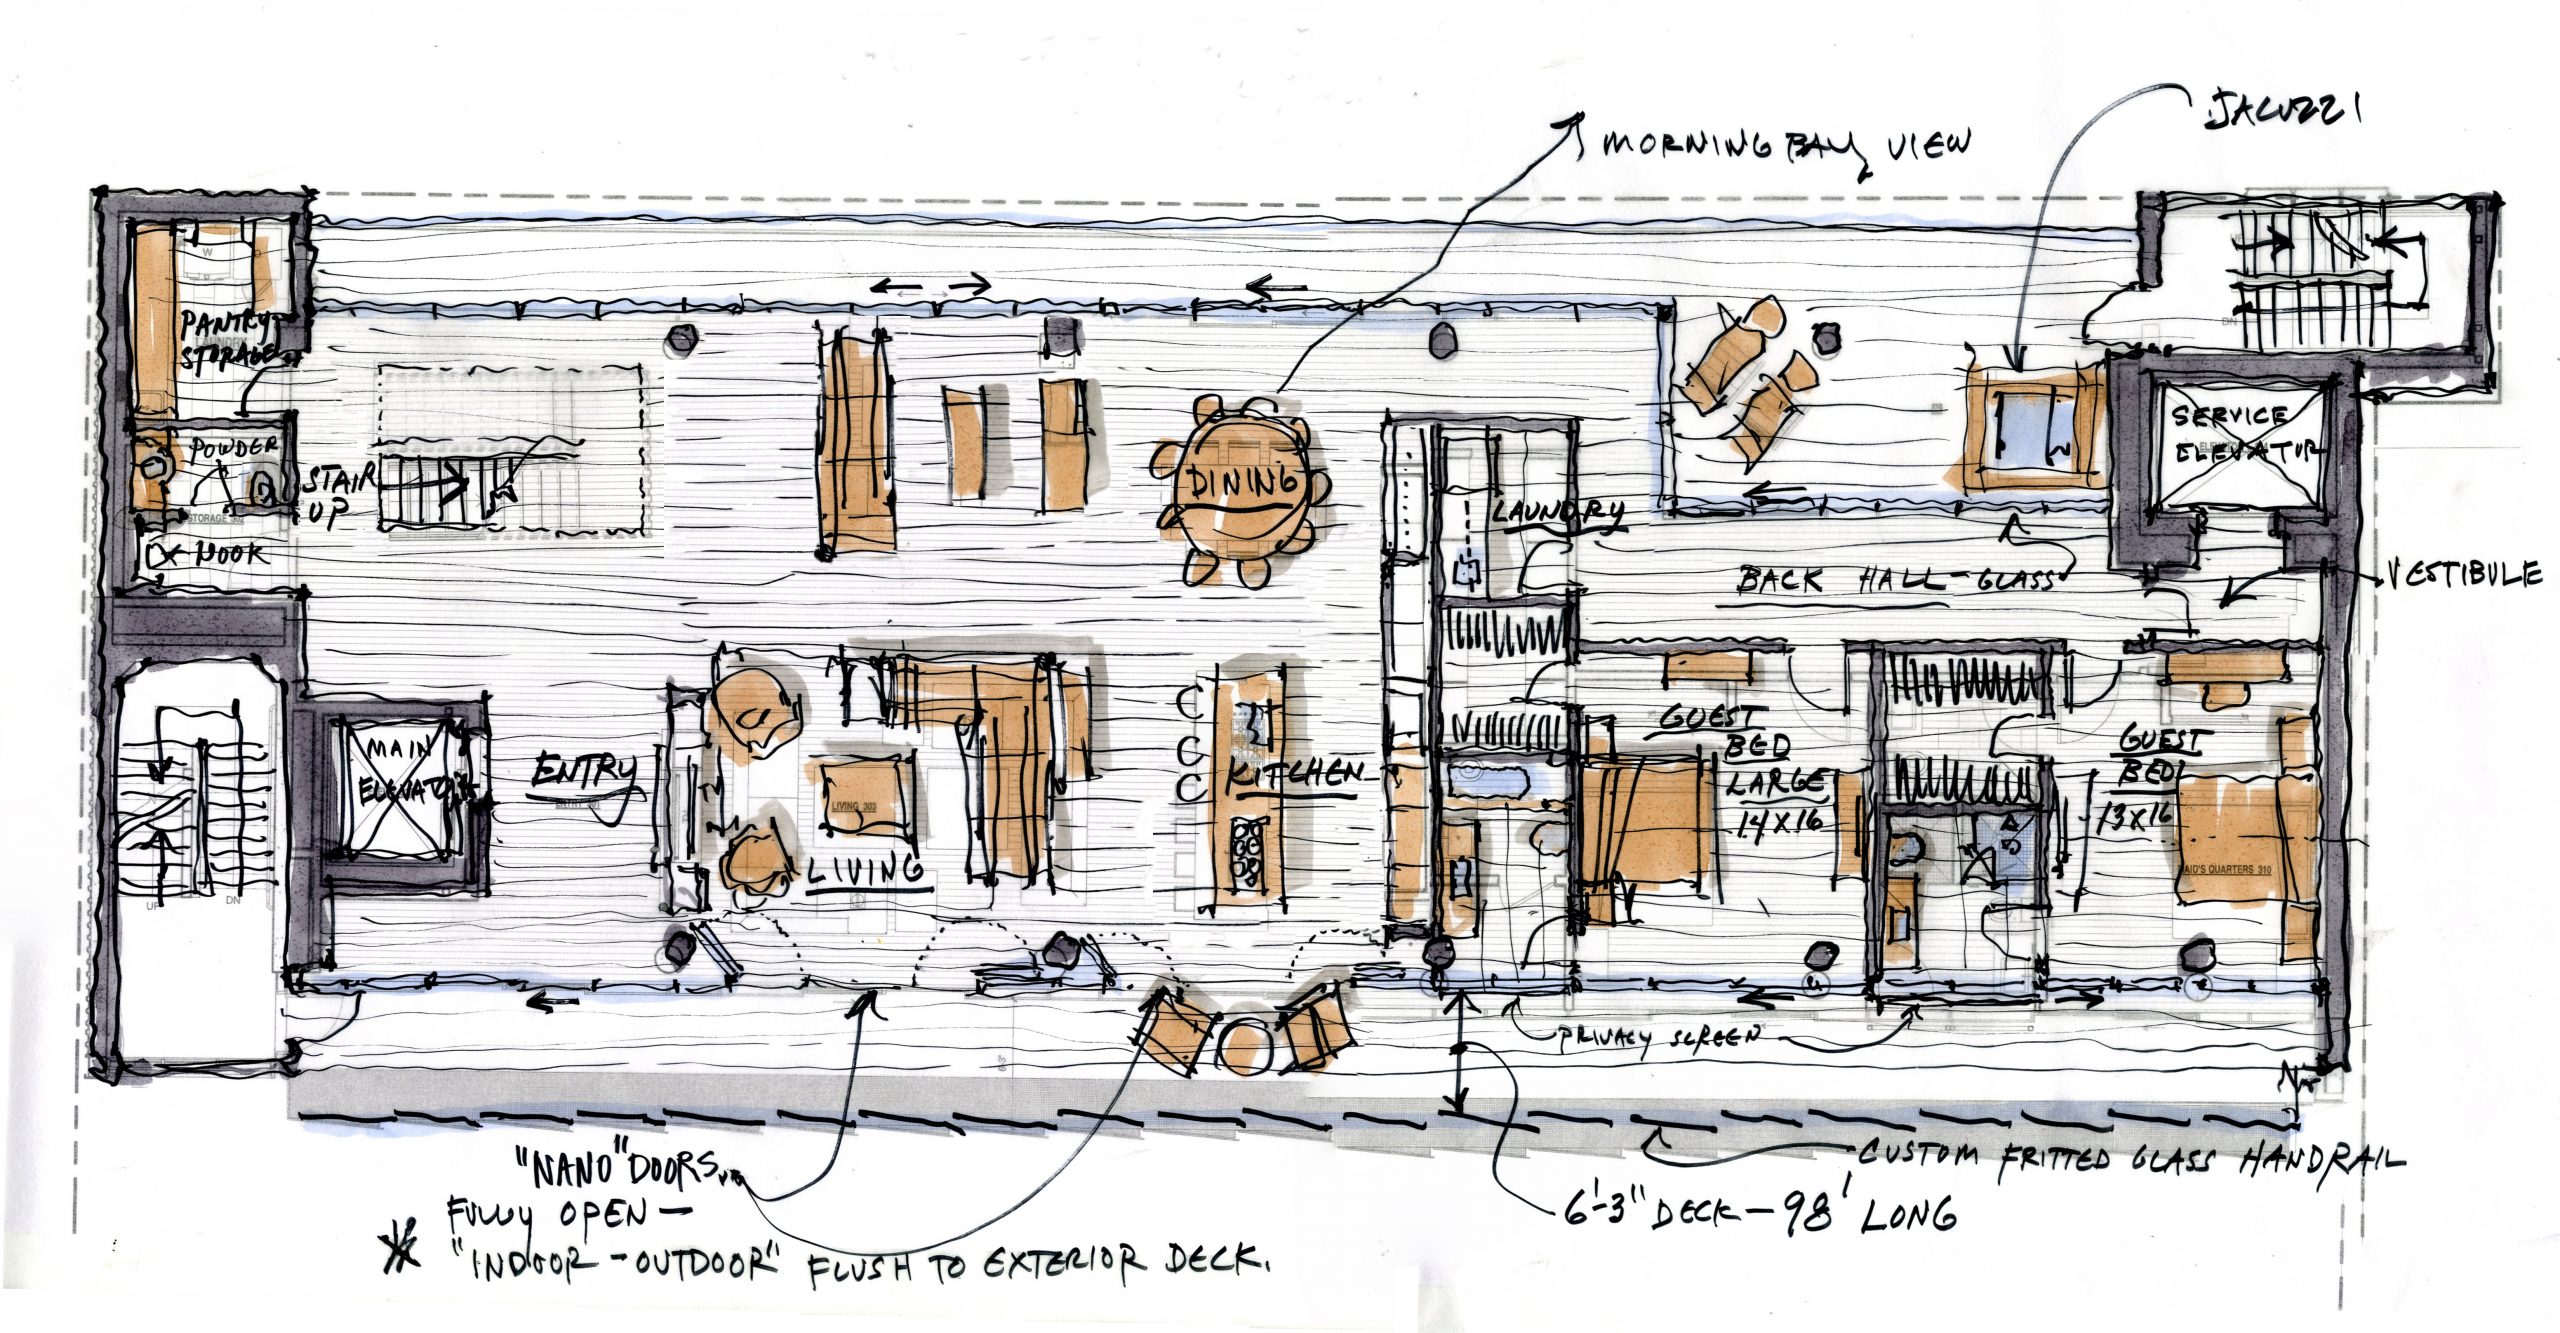 JACUZZI
MORNING BAY VIEW
PANTRY
STORAGE
W
DN
SERVICE
ELEVATOR
POWDER
DINING
STAIR
UP
STORAGE 302
NOOK
LAUNDRY
BACK HALL-GLASS
VESTIBULE
MAIN
ELEVATOR
ENTRY
KITCHEN
GUEST
BED
LARGE
14X16
GUEST
BED
13X16
LIVING 303
LIVING
MAID'S QUARTERS 310
UP
DN
PRIVACY SCREEN
"NANO" DOORS
FULLY OPEN —
"INDOOR-OUTDOOR" FLUSH TO EXTERIOR DECK.
CUSTOM FRITTED GLASS HANDRAIL
6'-3" DECK — 98' LONG